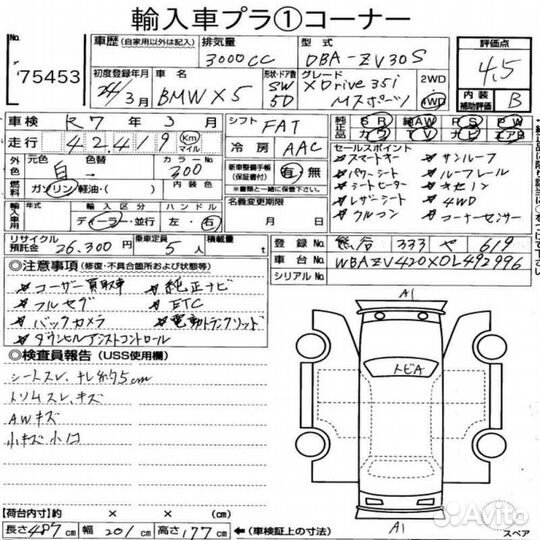 輸入車プラ①コーナー
No.
75453
車歴(自家用以外は記入)
排気量
3000CC
型式
DBA-ZV30S
評価点
4.5
内装補助評価
B
初度登録年月
24/3月
車名
BMW X5
形状・ドア数
SW
5D
グレード
XDrive 35i
Mスポーツ
2WD
4WD
車検 R7年3月
走行 42,419 Km マイル
シフト FAT
冷房 AAC
純正品
SR AW PS PW
カワ TV ナビ エアB
外色
元色 白
色替
カラーNo. 300
燃料 ガソリン・軽油・( )
内装色
新車整備手帳(保証書付) 有・無
名義変更期限
月 日
セールスポイント
スマートキー サンルーフ
パワーシート ルーフレール
シートヒーター キセノン
レザーシート 4WD
クルコン コーナーセンサー
輸入車用
年式
輸入区分 ディーラー・並行
ハンドル 左・右
リサイクル預託金 26,300円
乗車定員 5人
積載量 t
登録No. 熊谷 333 や 619
車台No. WBAZV420X0L492996
シリアルNo.
◎注意事項(修復・不具合箇所および状態等)
ユーザー買取車 純正ナビ
フルセグ ETC
バックカメラ 電動トランクリッド
ダウンヒルアシストコントロール
◎検査員報告(USS使用欄)
シートスレ、ナレ
トリムスレ、キズ
AWキズ
小キズ小凹
A1
トビA
A1
スペア
【荷台内寸】約 × × (cm)
長さ487cm 幅201cm 高さ177cm (車検証上の寸法)
Avito